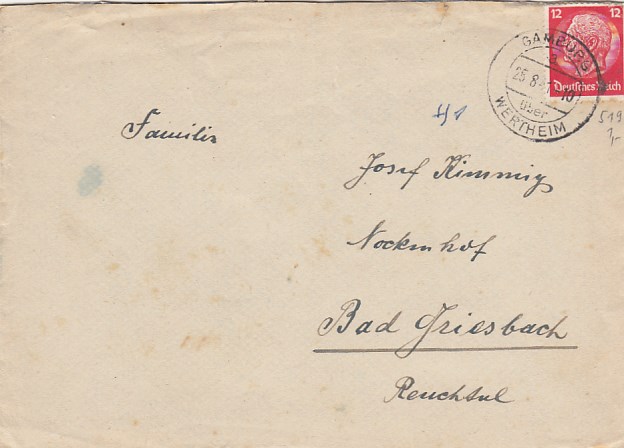 12 12
Deutsches Reich
GAMBURG
25.8.
10
über
WERTHEIM
519
1,-
Familie
Josef Kimmig
Nockenhof
Bad Griesbach
Renchtal